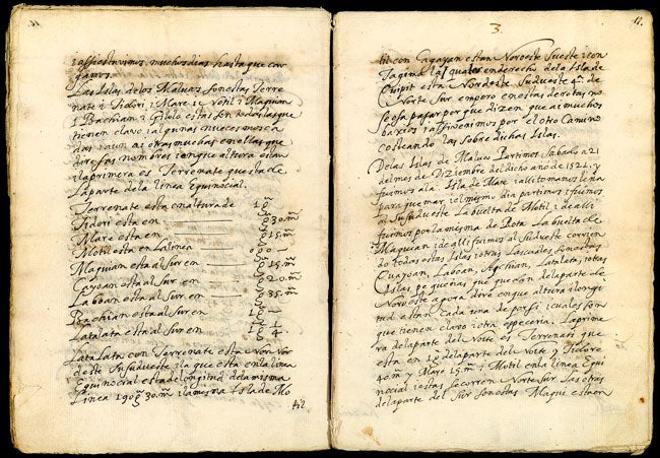 i assi estuvimos muchos dias hasta que car
gamos.
Las Islas de los Malucos son estas Terre
nate i Tidori, i Mare i Motil i Maquian
i Bachian, i Gilolo estas son todas las que
tienen clavo i algunas nueces mosca
das i aun ai otras muchas en ellas que
dire sus nombres i en que altura estan
i la primera es Terrenate questa de
la parte de la linea Equinocial.
Terrenate esta en altura de 1 g.
Tidori esta en 0 30 m
Mare esta en 0 15 m
Motil esta en la linea 0 0
Maquian esta al Sur en 0 15 m
Cayoan esta al Sur en 0 20 m
Laboan esta al Sur en 0 35 m
Bachian esta al Sur en 1
Latalata esta al Sur en 1
Latalata con Terrenate esta Nor Nor
deste Susudueste i la que esta en la linea
Equinocial esta de longitud de la misma
linea 190 g 30 m i la misma Isla de Mo
til
3.
11.
til con Cagayan estan Noroeste Sueste i con
Tagima la qual en derecho de la Isla de
Quipit esta Nordeste Sudueste 4ª de
Norte Sur empero en estas derotas no
se osa pasar por que dizen que ai muchos
baxios i assi venimos por el otro Camino
costeando las Sobre dichas Islas.
De las Islas de Maluco Partimos Sabado a 21
del mes de Diziembre del dicho año de 1521. y
fuimos a la Isla de Mare i alli tomamos leña
para quemar i el mismo dia partimos i fuimos
al Susudueste La buelta de Motil i de alli
fuimos por la misma de Rota La buelta de
Maquian i de alli fuimos al Sudueste corrien
do todas estas Islas i otras Las cuales son estas
Cuayoan, Laboan, Agchian, Latalata, i otras
Islas pequeñas que quedan de la parte de
Noroeste agora dire en que altura i longi
tud estan Cada una de por si i cuales son
que tienen clavo i otra especeria. La prime
ra de la parte del Norte es Terrenate que
esta en 1 g de la parte del Norte y Tidore
40 m y Mare 15 m y Motil en la linea Equi
nocial i estas se corren Norte Sur Las otras
de la parte del Sur son estas Maqui esta en